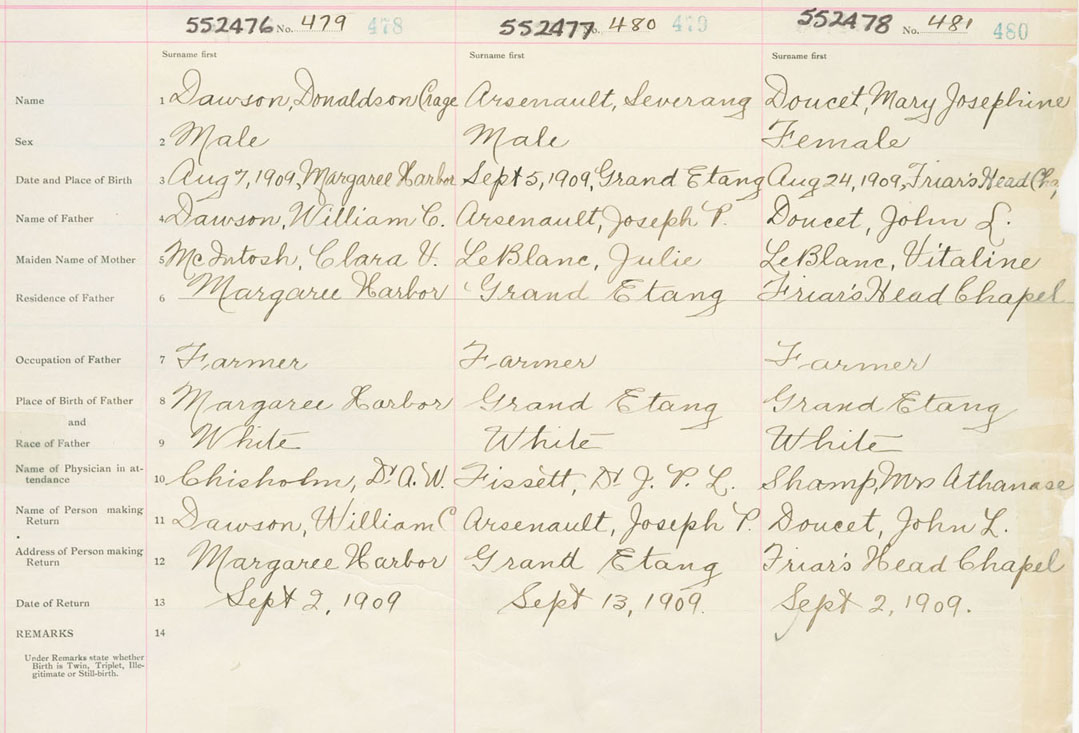 552476 No. 479 478 552477 No. 480 479 552478 No. 481 480
Surname first Surname first Surname first
Name 1 Dawson, Donaldson Crage Arsenault, Severang Doucet, Mary Josephine
Sex 2 Male Male Female
Date and Place of Birth 3 Aug 7, 1909, Margaree Harbor Sept 5, 1909, Grand Etang Aug 24, 1909, Friar's Head Cha
Name of Father 4 Dawson, William C. Arsenault, Joseph P. Doucet, John L.
Maiden Name of Mother 5 McIntosh, Clara V. LeBlanc, Julie LeBlanc, Vitaline
Residence of Father 6 Margaree Harbor Grand Etang Friar's Head Chapel
Occupation of Father 7 Farmer Farmer Farmer
Place of Birth of Father 8 Margaree Harbor Grand Etang Grand Etang
and
Race of Father 9 White White White
Name of Physician in at-
tendance 10 Chisholm, Dr A. W. Fissett, Dr J. P. L. Shamp, Mrs Athanase
Name of Person making
Return 11 Dawson, William C Arsenault, Joseph P. Doucet, John L.
Address of Person making
Return 12 Margaree Harbor Grand Etang Friar's Head Chapel
Date of Return 13 Sept 2, 1909 Sept 13, 1909. Sept 2, 1909.
REMARKS 14
Under Remarks state whether
Birth is Twin, Triplet, Ille-
gitimate or Still-birth.